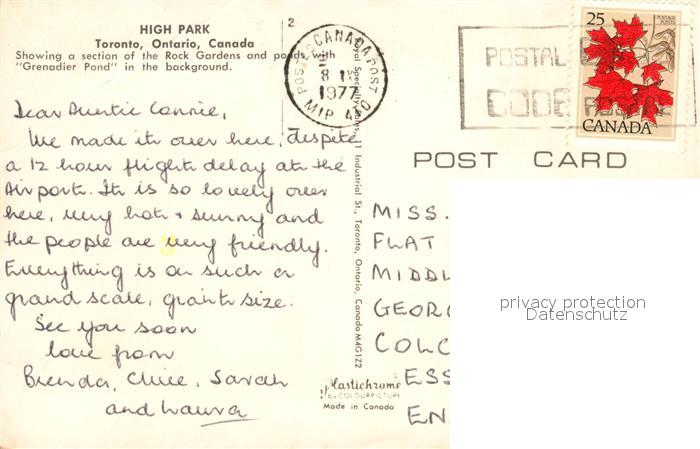 HIGH PARK
Toronto, Ontario, Canada
Showing a section of the Rock Gardens and ponds, with
"Grenadier Pond" in the background.
Dear Auntie Connie,
We made it over here, despite
a 12 hour flight delay at the
Airport. It is so lovely over
here, very hot + sunny and
the people are very friendly.
Everything is on such a
grand scale, giant size.
See you soon
love from
Brenda, Clive, Sarah
and Laura
2
CANADA POST
POSTES
8 IX
1977
Royal Specialty Sales, 11 Industrial St., Toronto, Ontario, Canada M4G1Z2
Plastichrome
by COLOURPICTURE
Made in Canada
POSTAL
CODE
25
POSTAGE POSTES
CANADA
POST CARD
MISS.
FLAT
MIDDL
GEORG
COLC
ESS
EN
privacy protection
Datenschutz